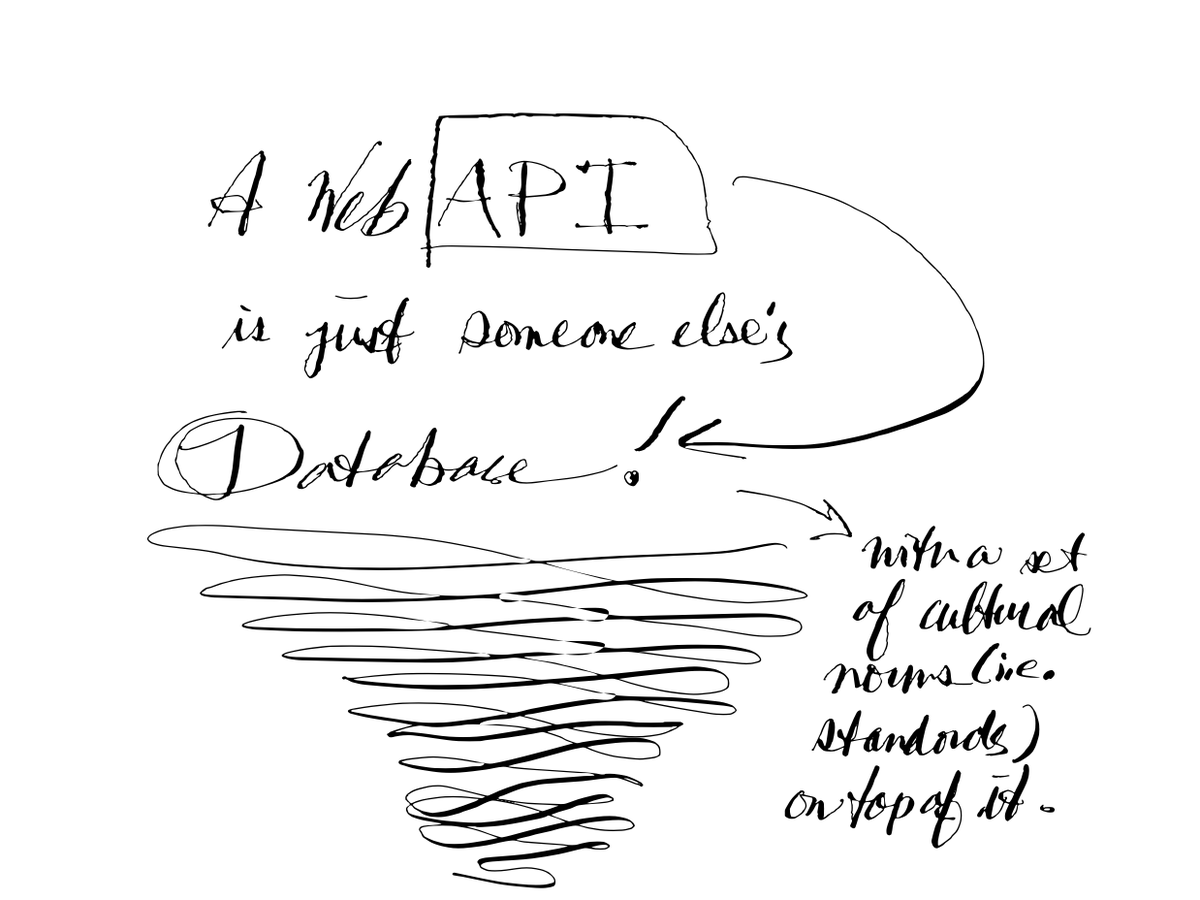 A Web API
is just someone else's
Database!
with a set
of cultural
norms (i.e.
standards)
on top of it.